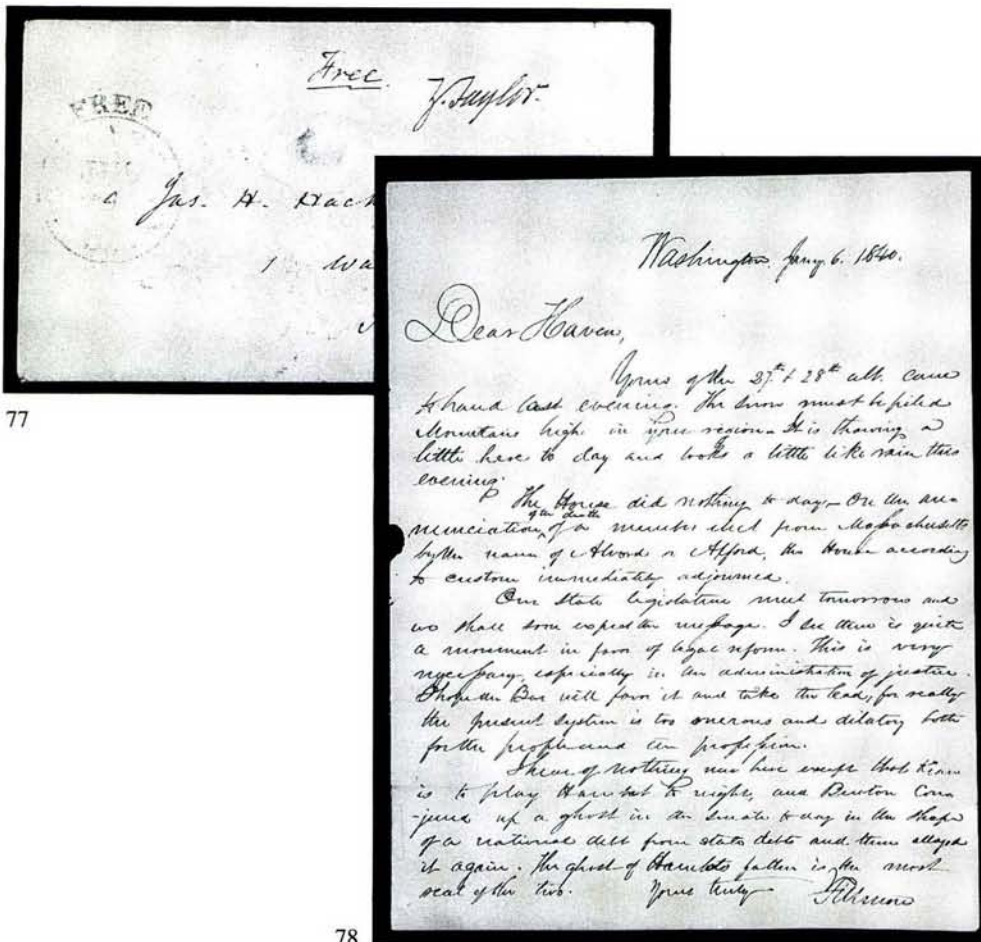 Free
Z. Taylor.
FREE
Jas. H. Hack
Wa
77
Washington, Jany. 6. 1840.
Dear Haven,
Yours of the 27th & 28th ult. came
to hand last evening. The snow must be piled
Mountains high in your region. It is thawing a
little here to day and looks a little like rain this
evening.
The House did nothing to day. On the an-
of the death
nunciation of a member elect from Massachusetts
by the name of Alvord or Alford, the House according
to custom immediately adjourned.
Our state legislature meet tomorrow and
we shall soon expect the message. I see there is quite
a movement in favor of legal reform. This is very
necessary, especially in the administration of justice.
I hope the Bar will favor it and take the lead, for really
the present system is too onerous and dilatory both
for the people and the profession.
I hear of nothing new here except that Kean
is to play Hamlet to night, and Benton Con-
-jured up a ghost in the Senate to day in the shape
of a national debt from state debts and then allayed
it again. The ghost of Hamlets father is the most
real of the two. Yours truly
Fillmore
78